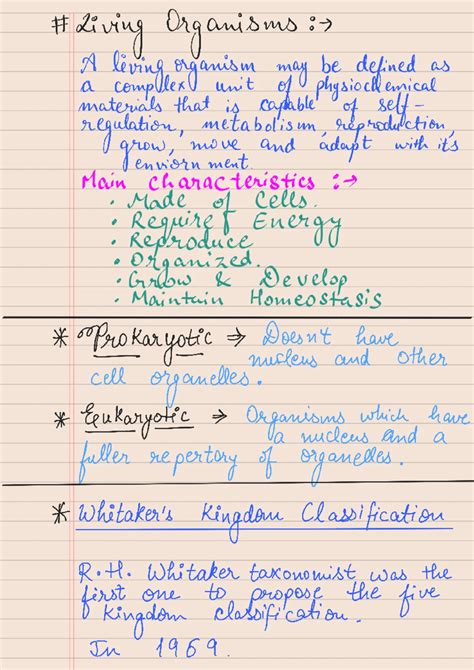 # Living Organisms :→
A living organism may be defined as
a complex unit of physiochemical
materials that is capable of self-
regulation, metabolism, reproduction,
grow, move and adapt with it's
enviornment.
Main characteristics :→
• Made of Cells.
• Require Energy
• Reproduce
• Organized.
• Grow & Develop
• Maintain Homeostasis
* Prokaryotic ⇒ Doesn't have
nucleus and other
cell organelles.
* Eukaryotic ⇒ Organisms which have
a nucleus and a
fuller repertory of organelles.
* Whitaker's Kingdom Classification
R.H. Whitaker taxonomist was the
first one to propose the five
Kingdom classification.
In 1969.